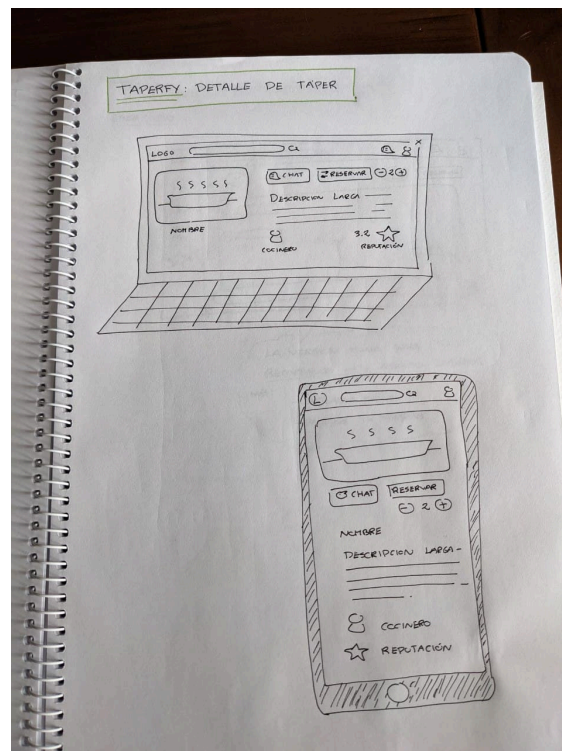 TAPERFY: DETALLE DE TÁPER
LOGO
CHAT
RESERVAR
- 2 +
DESCRIPCION LARGA
NOMBRE
COCINERO
3.2
REPUTACIÓN
L
CHAT
RESERVAR
- 2 +
NOMBRE
DESCRIPCION LARGA -
COCINERO
REPUTACIÓN